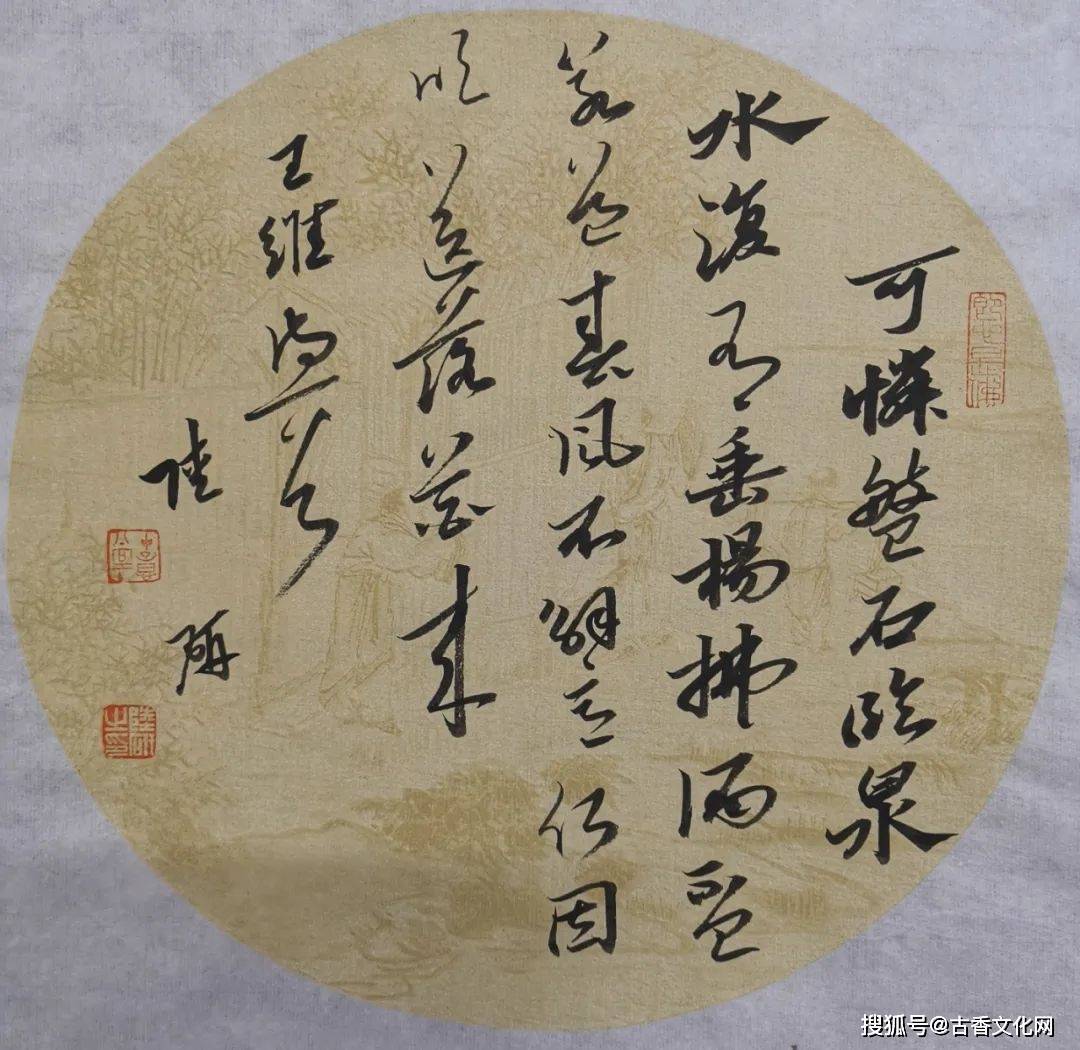 可憐盤石臨泉
水復有垂楊拂酒盃
若道春風不解意何因
吹送落花来
王維詩一首
陸研
搜狐号@古香文化网